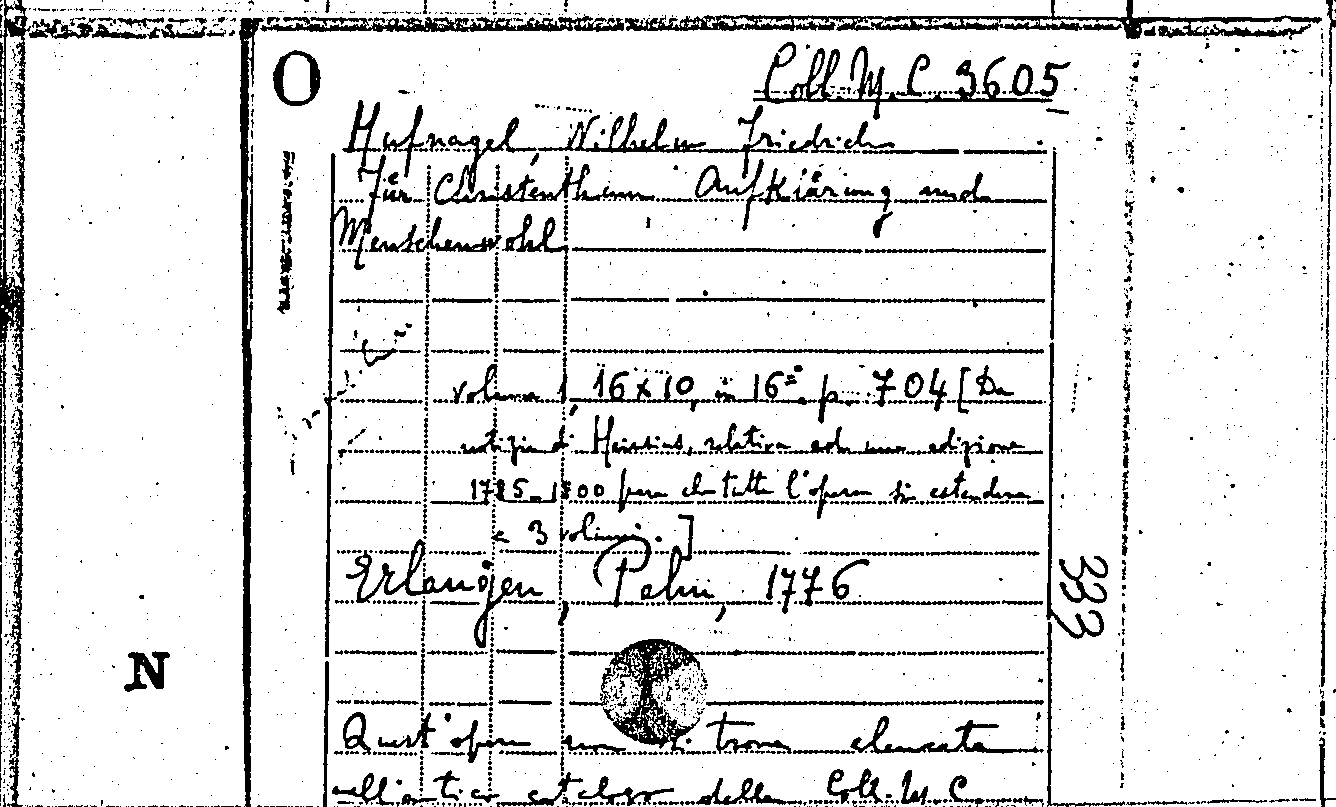 O
Coll. M. C. 3605
Hufnagel, Wilhelm Friedrich
Für Christenthum Aufklärung und
Menschenwohl
volume 1, 16 x 10, in 16º, p. 704 [Da
notizia di Heinsius, relativa ad una edizione
1785-1800 pare che tutta l'opera si estendesse
a 3 volumi.]
Erlangen, Palm, 1776
333
N
Quest'opera non si trova elencata
nell'antico catalogo della Coll. M. C.